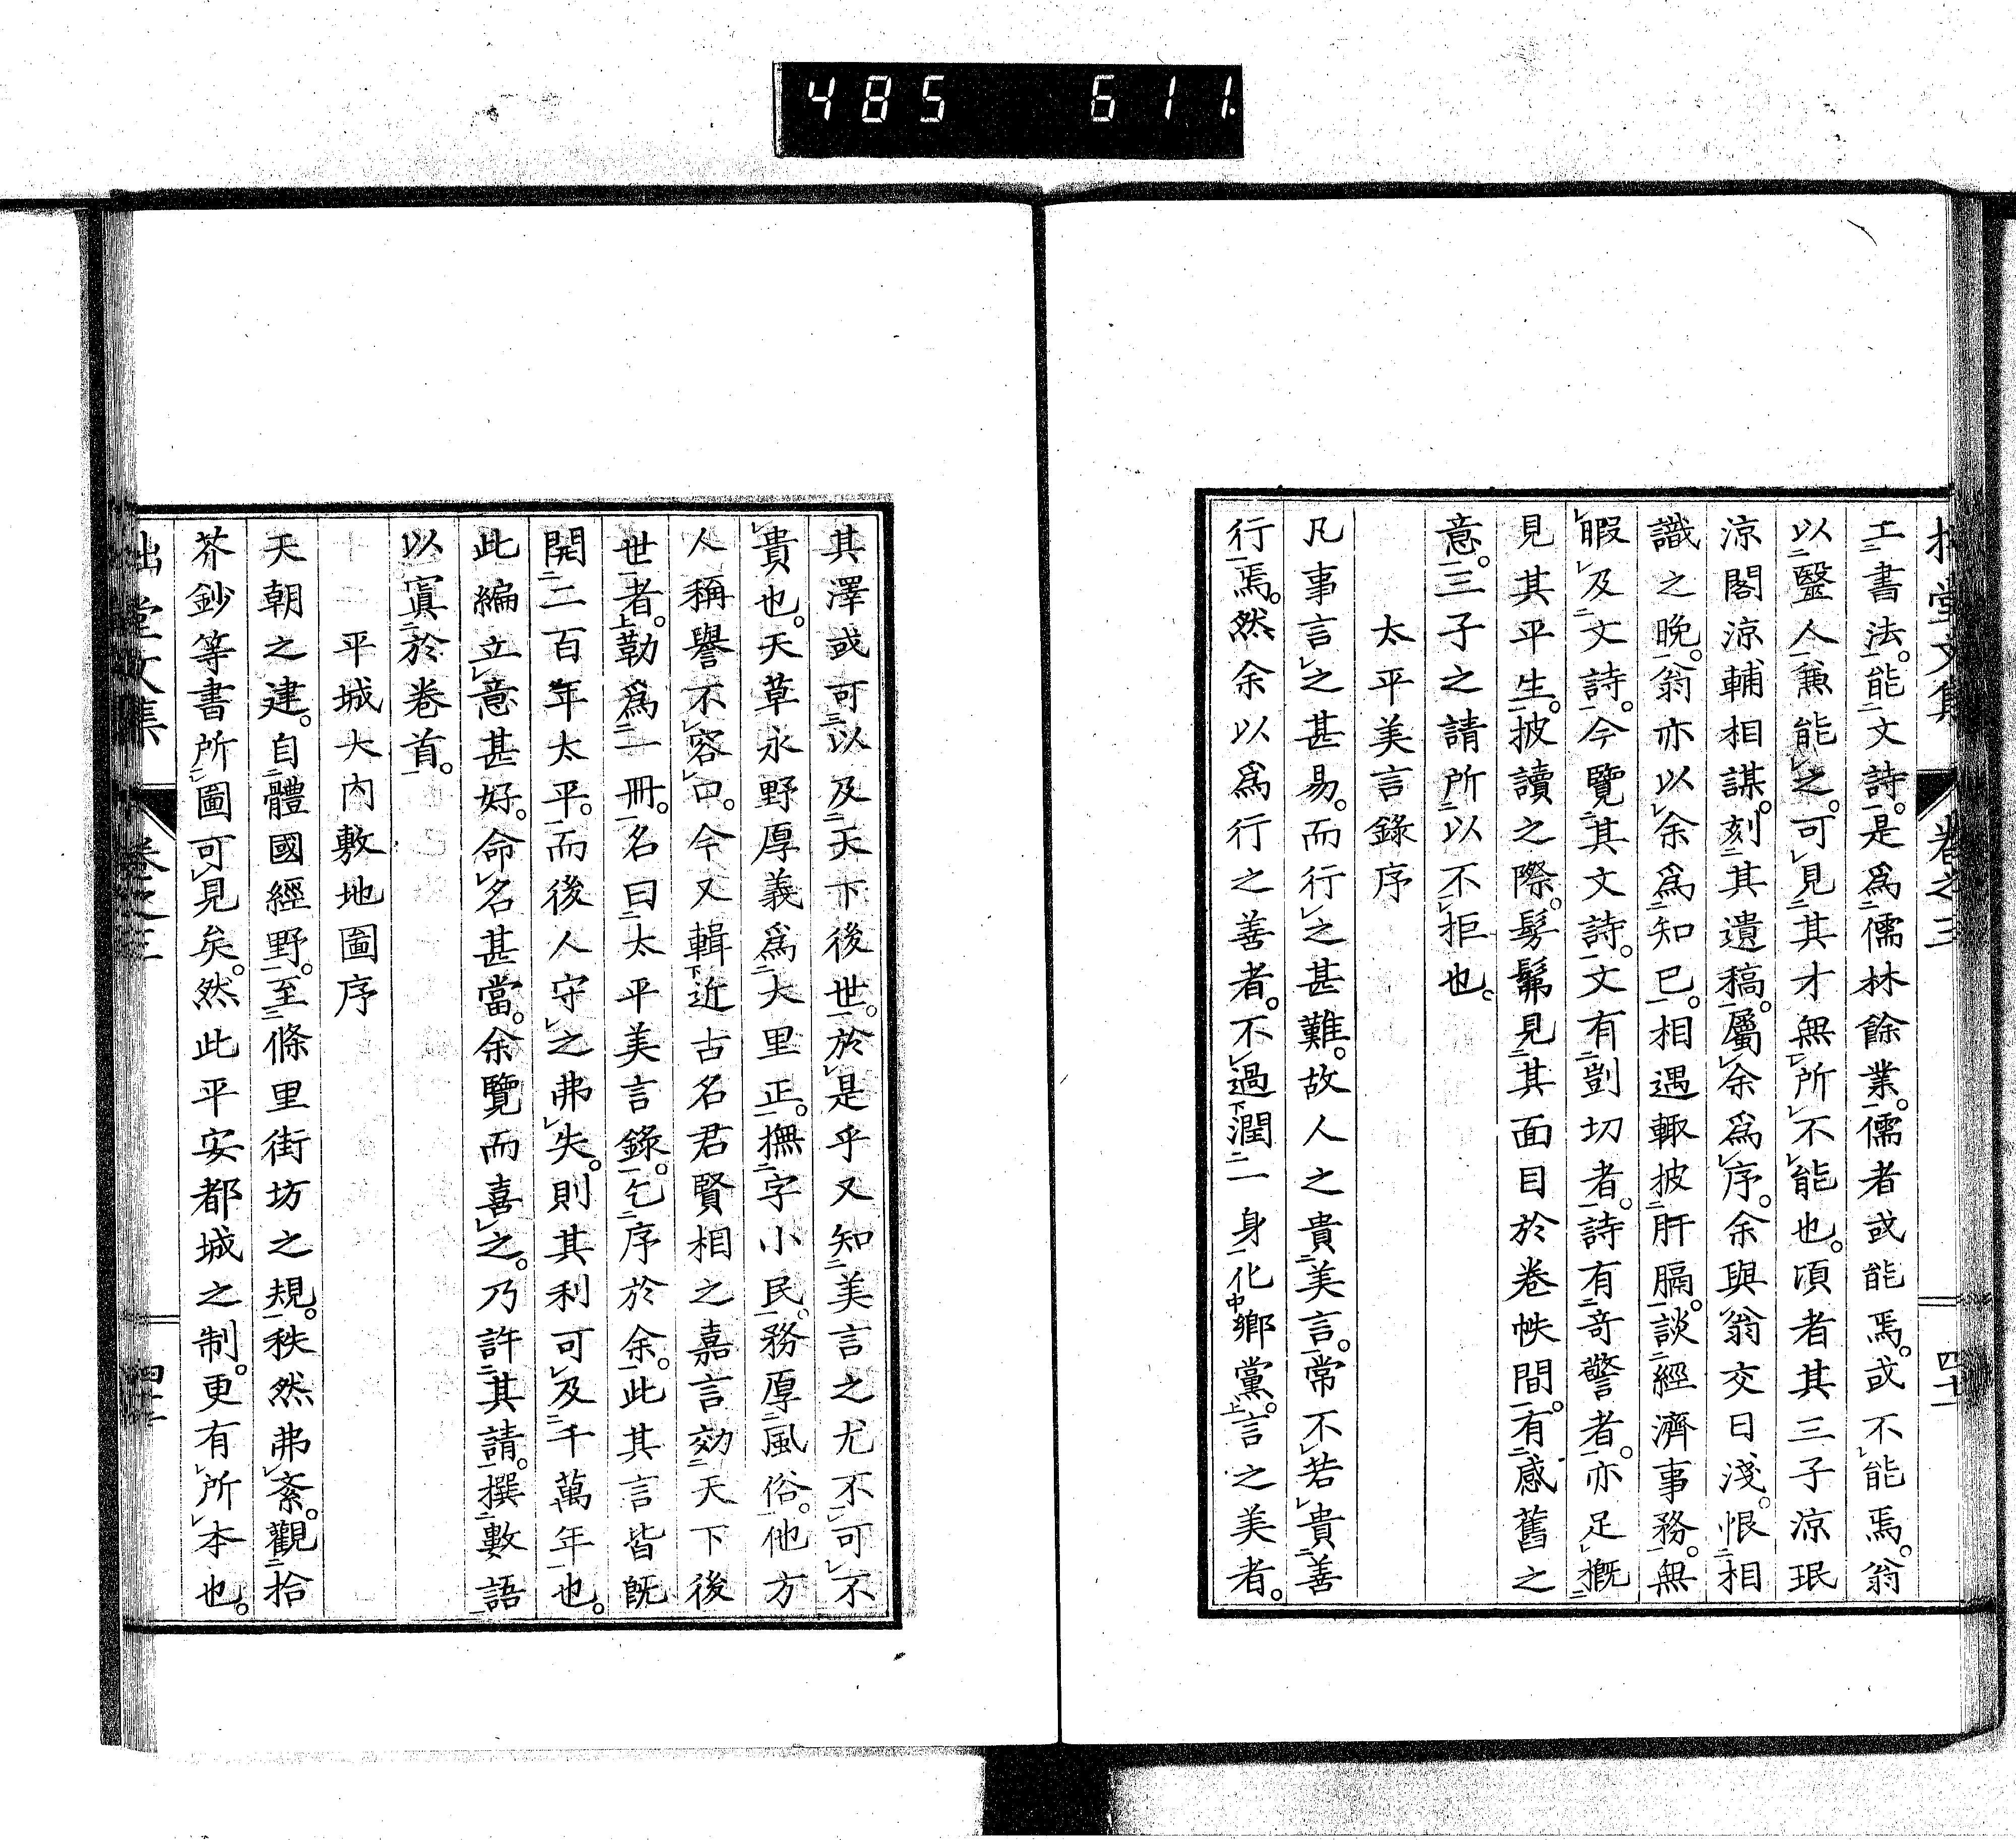 485 611.
拙堂文集 卷之三 四十一
工書法。能文詩。是爲儒林餘業。儒者或能焉。或不能焉。翁
以毉人兼能之。可見其才無所不能也。頃者其三子涼珉
涼閣涼輔相謀。刻其遺稿。屬余爲序。余與翁交日淺。恨相
識之晩。翁亦以余爲知己。相遇輙披肝膈。談經濟事務。無
暇及文詩。今覽其文詩。文有剴切者。詩有奇警者。亦足概
見其平生。披讀之際。髣髴見其面目於卷帙間。有感舊之
意。三子之請所以不拒也。
太平美言錄序
凡事言之甚易。而行之甚難。故人之貴美言。常不若貴善
行焉。然余以爲行之善者。不過潤一身化鄉黨。言之美者。
其澤或可以及天下後世。於是乎又知美言之尤不可不
貴也。天草永野厚義爲大里正。撫字小民。務厚風俗。他方
人稱譽不容口。今又輯近古名君賢相之嘉言効天下後
世者。勒爲一冊。名曰太平美言錄。乞序於余。此其言皆旣
開二百年太平。而後人守之弗失。則其利可及千萬年也。
此編立意甚好。命名甚當。余覽而喜之。乃許其請。撰數語
以寘於卷首。
平城大內敷地圖序
天朝之建。自體國經野。至條里街坊之規。秩然弗紊。觀拾
芥鈔等書所圖可見矣。然此平安都城之制。更有所本也。
拙堂文集 卷之三